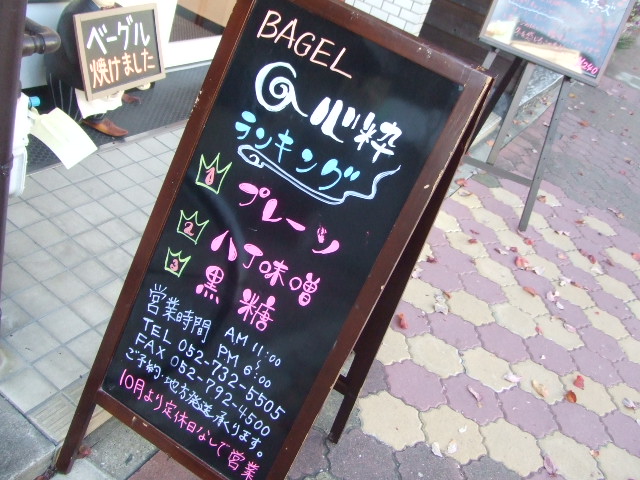 ベーグル
焼けました
BAGEL
心粋
ランキング
1 プレーン
2 八丁味噌
3 黒糖
営業時間 AM 11:00
PM 6:00
TEL 052-732-5505
FAX 052-792-4500
ご予約 地方発送承ります。
10月より定休日なしで営業
¥240